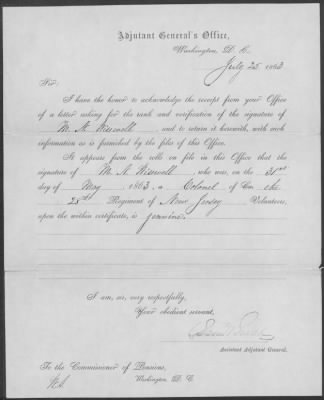 Adjutant General's Office,
Washington, D. C.,
July 25 1863
Sir:
I have the honor to acknowledge the receipt from your Office
of a letter asking for the rank and verification of the signature of
M. N. Wisewell and to return it herewith, with such
information as is furnished by the files of this Office.
It appears from the rolls on file in this Office that the
signature of M. N. Wisewell who was, on the 31st
day of May 1863, a Colonel of the
28th Regiment of New Jersey Volunteers,
upon the within certificate, is genuine.
I am, sir, very respectfully,
Your obedient servant,
Assistant Adjutant General.
To the Commissioner of Pensions,
Washington, D. C.